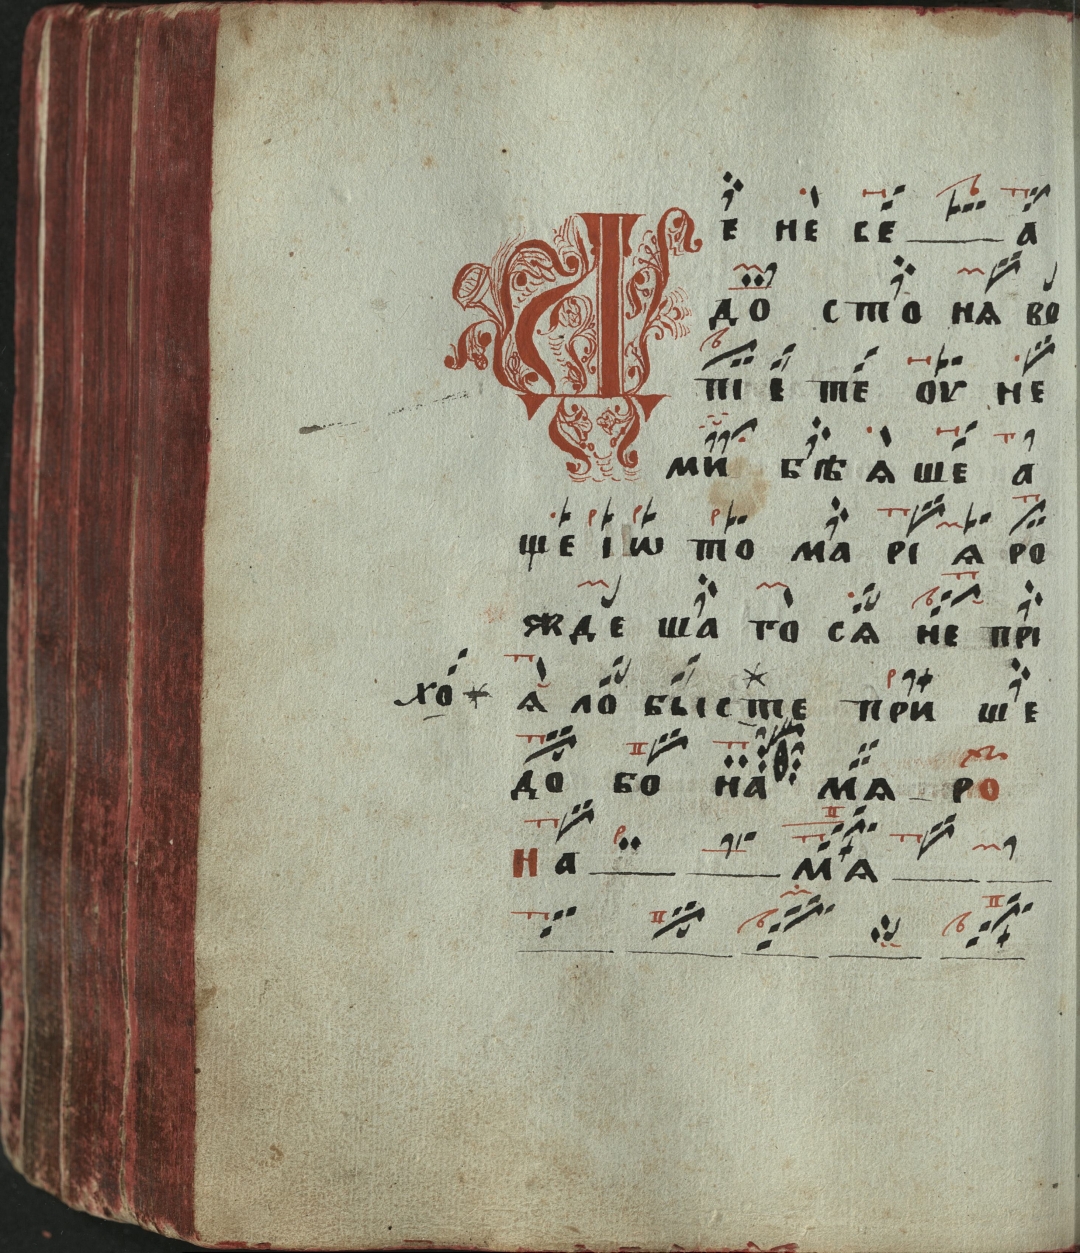 Е НЕ БЕ А
ДО СТО НѦ ВО
ПІ Е ТЕ ОУ НЕ
МИ БѢ Ѧ ШЕ А
ЩЕ І Ѡ ТО МА РІ Ѧ РО
ЖДЕ ША ГО СѦ НЕ ПРІ
ХО Ѧ ЛО БЫІСТЕ ПРИ ШЕ
ДО БО НА МѦ РО
НА МѦ